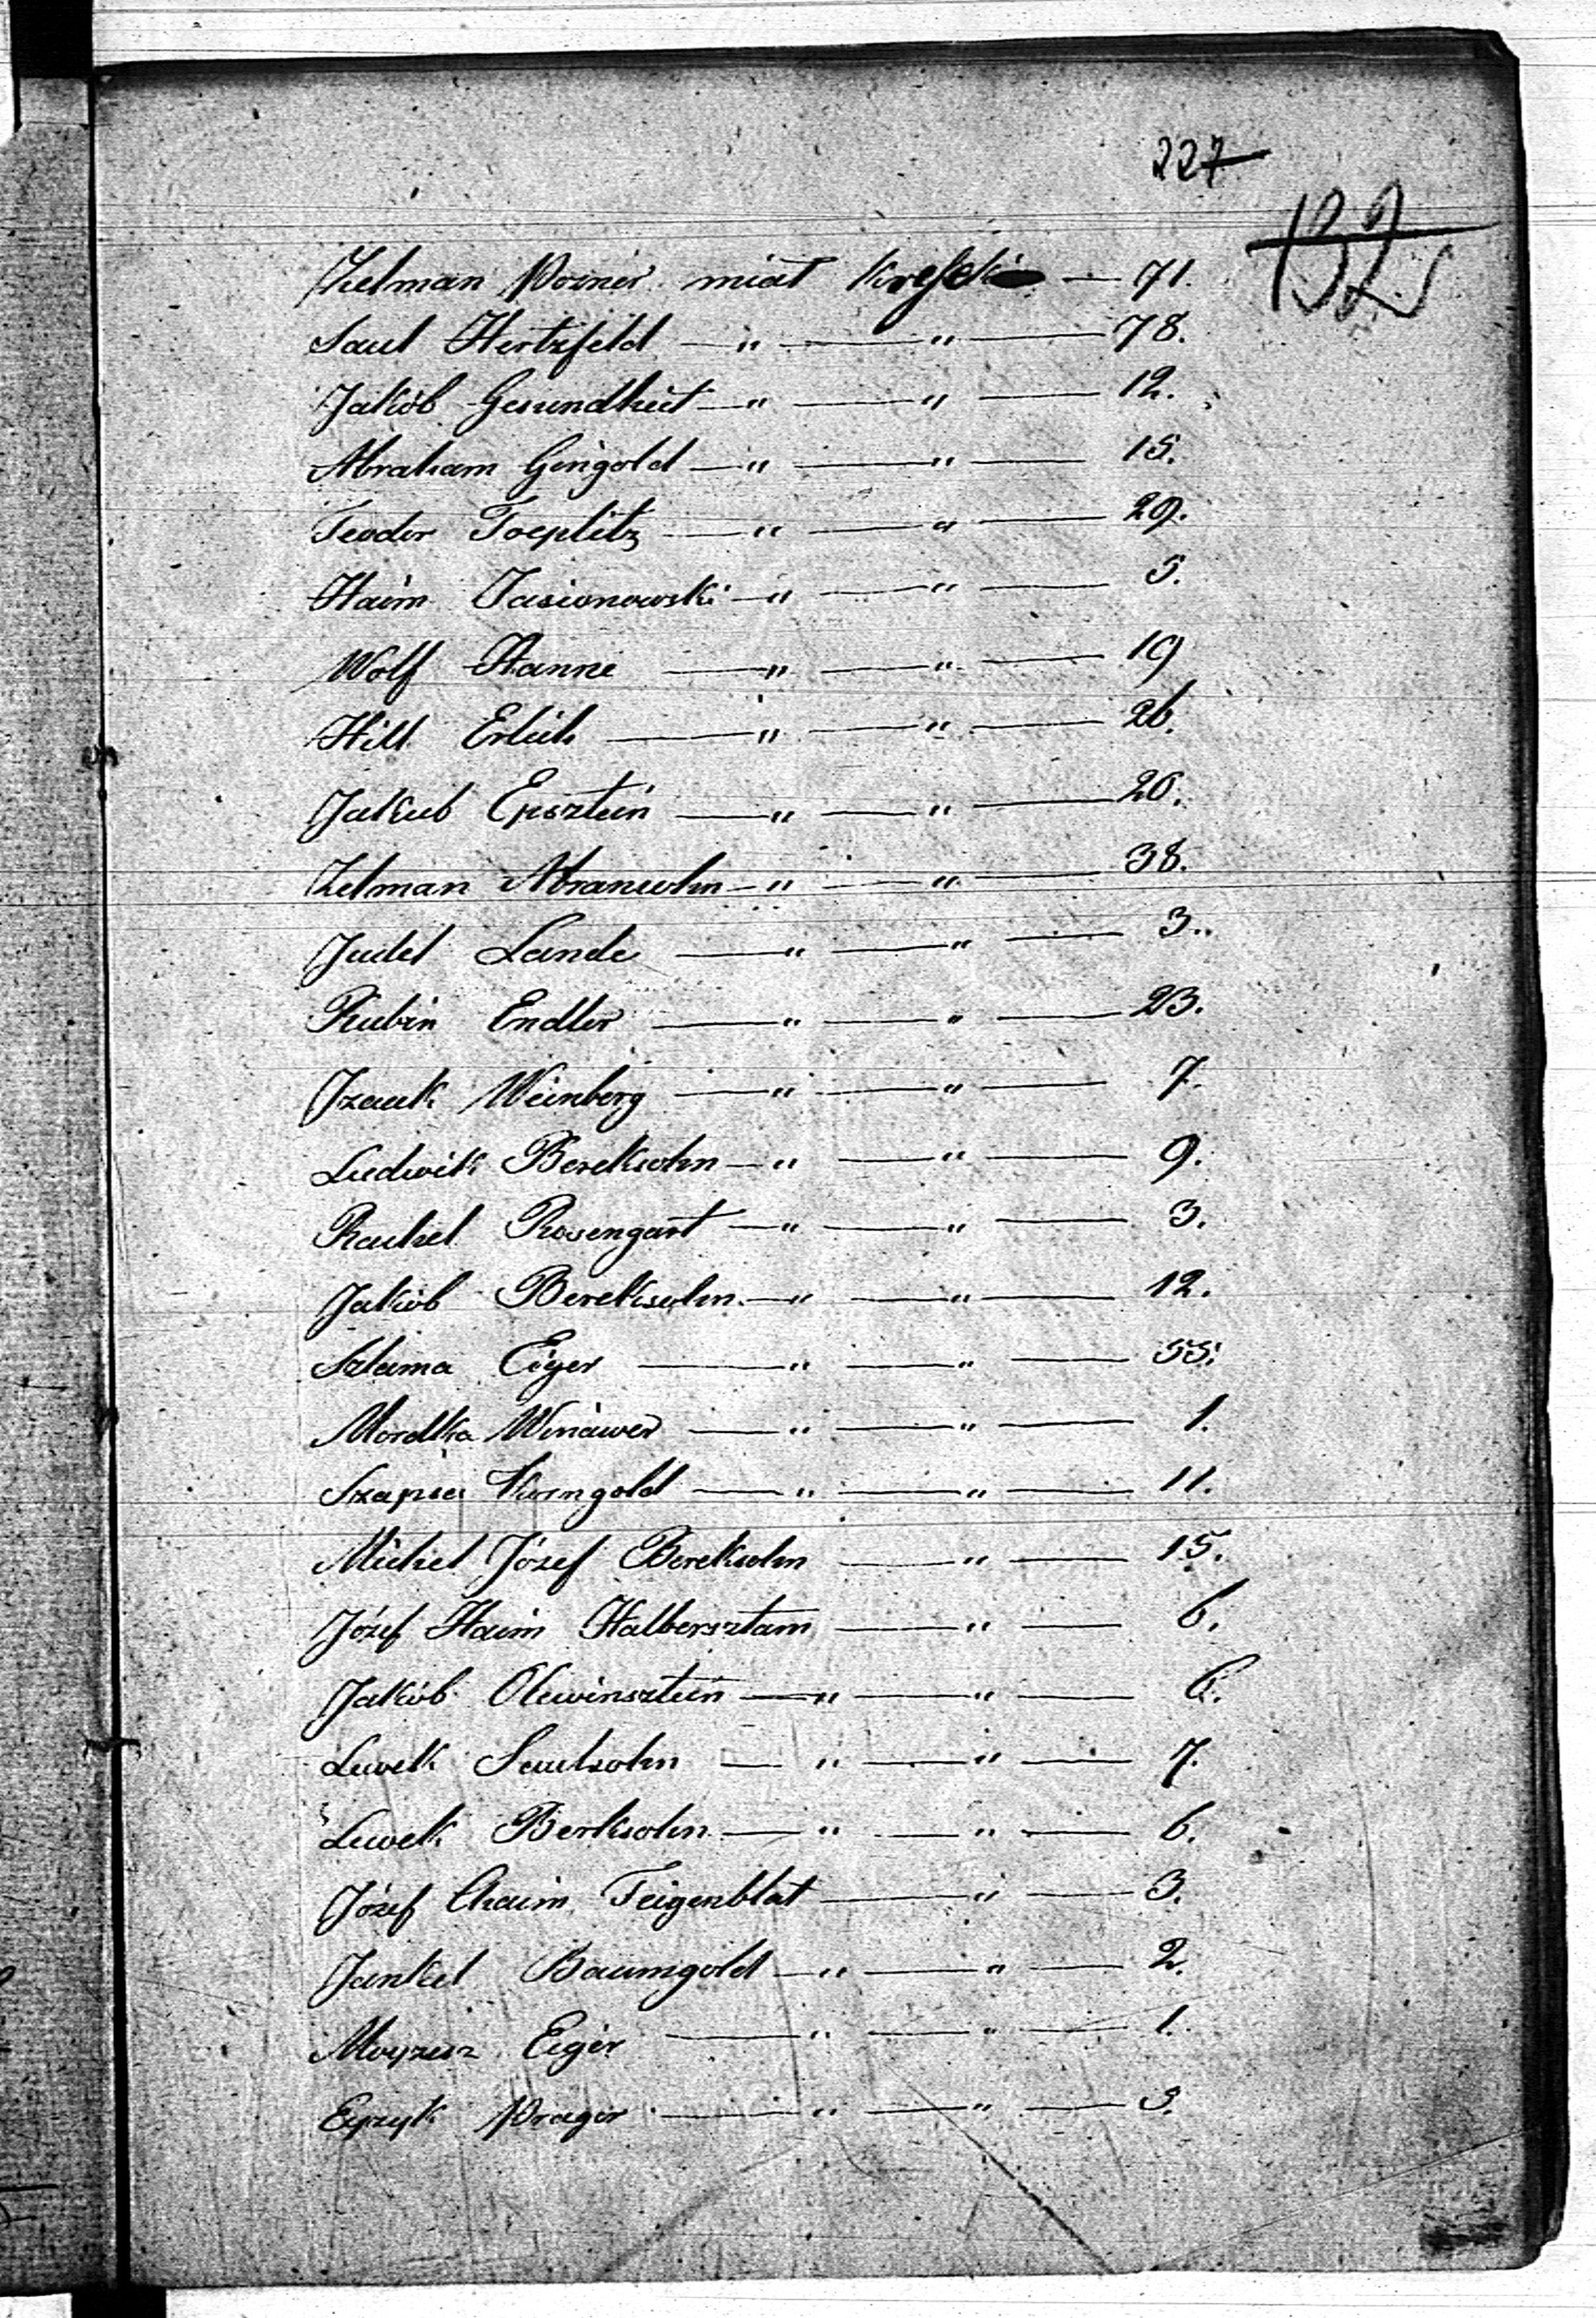 227
132
Zelman Pozner miał kresek — 71.
Saul Hertzfeld — " — " — 78.
Jakób Gesundheit — " — " — 12.
Abraham Gingold — " — " — 15.
Teodor Toeplitz — " — " — 29.
Haim Jasionowski — " — " — 5.
Wolf Hanne — " — " — 19
Hill Erlich — " — " — 26.
Jakub Epsztein — " — " — 20.
Zelman Abramsohn — " — " — 38.
Judel Lande — " — " — 3.
Rubin Endler — " — " — 23.
Izaak Weinberg — " — " — 7.
Ludwik Bereksohn — " — " — 9.
Rachel Rosengart — " — " — 3.
Jakób Bereksohn — " — " — 12.
Szlama Eiger — " — " — 55.
Mordka Winawer — " — " — 1.
Szapsa Korngold — " — " — 11.
Michel Józef Bereksohn — " — 15.
Józef Haim Halbersztam — " — 6.
Jakób Olewinsztein — " — " — 6.
Lewek Saulsohn — " — " — 7.
Lewek Berksohn — " — " — 6.
Józef Chaim Feigenblat — " — 3.
Jankel Baumgold — " — " — 2.
Moyzesz Eiger — " — " — 1.
Eyzyk Prager — " — " — 3.